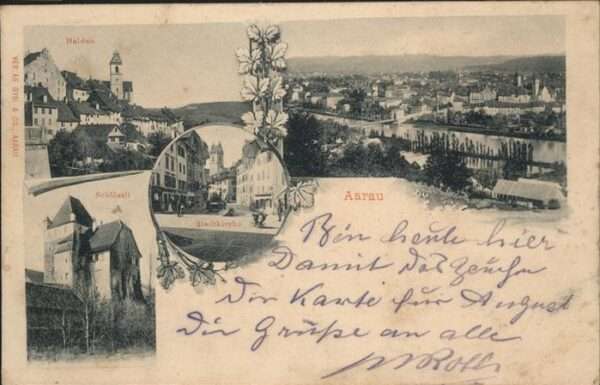 Halden
Schlössli
Stadtkirche
Aarau
Bin heute hier
Damit das Zeichen
Die Karte für August
Die Grüße an alle